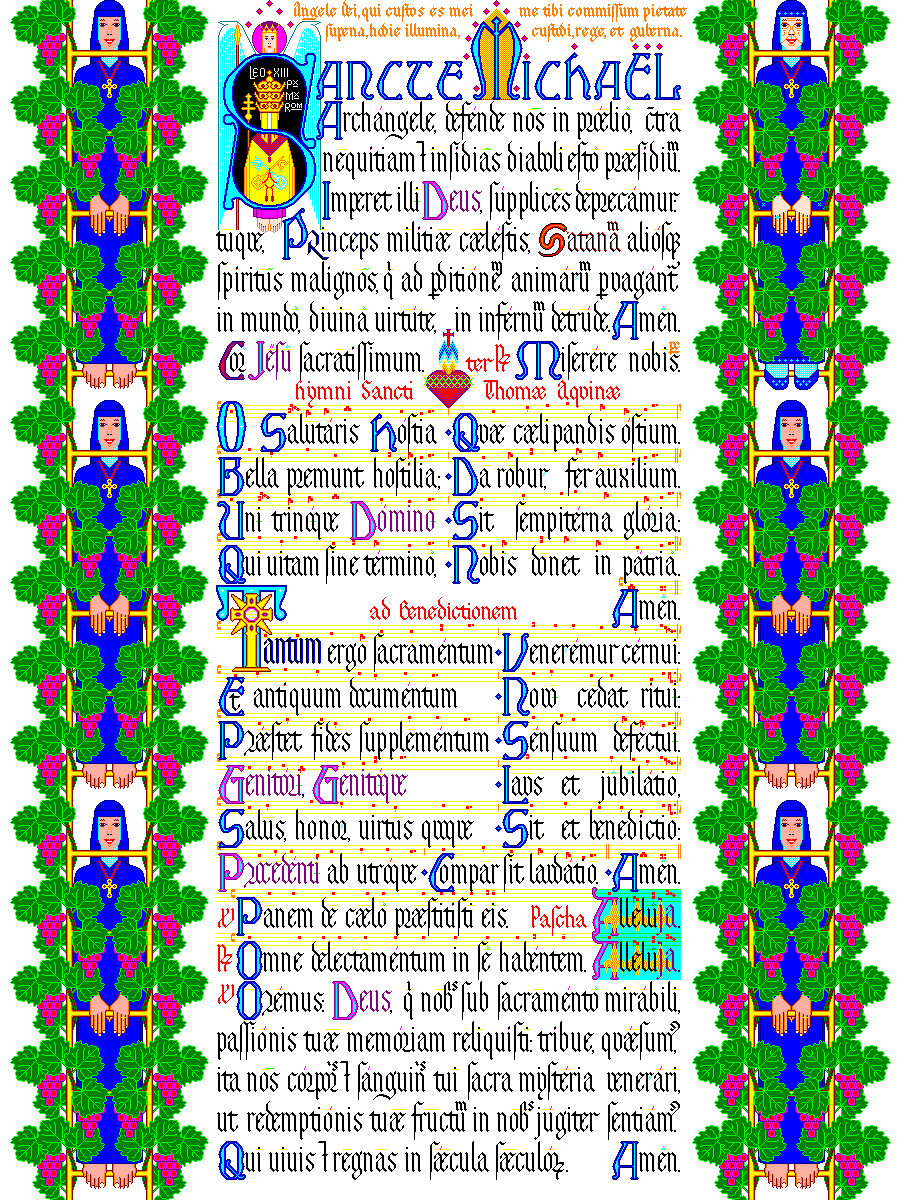 Angele Dei, qui custos es mei me tibi commissum pietate
superna, hodie illumina, custodi, rege, et guberna.
LEO XIII
PP
MX
ROM
SANCTE MICHAËL
Archángele, defénde nos in prœlio, c̄tra
nequitiam ⁊ insidias diaboli esto præsidiūᵐ.
Imperet illi Deus, súpplices deprecámur:
tuque, Princeps militiæ cælestis, Satanāᵐ aliósqꝫ
spiritus malignos, q̇ ad ꝑditionēᵐ animárūᵐ ꝑvagánt̄
in mundo, divina virtute, in infernūᵐ detrude. Amen.
Cor Jesu sacratissimum. ter ℟ Miserére nobis.
hymni Sancti Thomæ Aquinæ
O Salutaris Hostia · Quæ cæli pandis ostium.
Bella premunt hostilia; · Da robur, fer auxilium.
Uni trinoque Dómino · Sit sempitérna glória:
Qui vitam sine término, · Nobis donet in patria.
Amen.
ad Benedictionem
Tantum ergo sacraméntum · Venerémur cérnui:
Et antiquum documéntum · Novo cedat ritui:
Præstet fides supplementum · Sénsuum deféctui.
Genitóri, Genitoque · Laus et jubilátio,
Salus, honor, virtus quoque · Sit et benedictio:
Procedénti ab utroque · Compar sit laudátio. · Amen.
℣ Panem de cælo præstitisti eis. Pascha Alleluja.
℟ Omne delectaméntum in se habéntem. Alleluja.
℣ Orémus. Deus, q̇ nobˢ sub sacramento mirábili,
passiónis tuæ memóriam reliquisti: tribue, quæsumꝰ,
ita nos córporˢ ⁊ sánguinˢ tui sacra mystéria venerári,
ut redemptiónis tuæ fructūᵐ in nobˢ júgiter sentiámꝰ.
Qui vivis ⁊ regnas in sæcula sæculóꝝ. Amen.